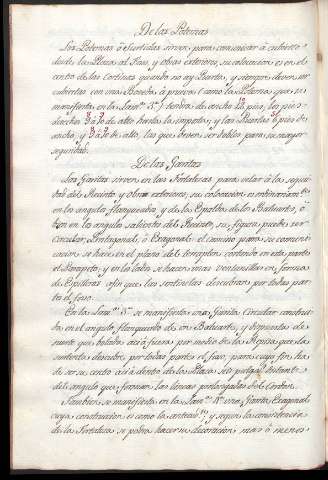 De las Poternas
Las Poternas ò surtidas sirven para comunicar à cubierto
desde la Plaza al foso, y obras exteriores; su colocacion es en el
centro de las Cortinas quando no ay Puerta, y siempre deven ser
cubiertas con una Boveda à prueva; como la Poterna que se
manifiesta en la Lam.ª 5.ª; tendra de ancho 12 pies, los pies
derechos 8 à 9 de alto hasta la imposta; y las Puertas 6 pies de
ancho, y 8 à 9 de alto, las que deven ser dobles para su mayor
seguridad.
De las Garitas
Las Garitas sirven en las Fortalezas para velar à la seguri
dad del Recinto, y obras exteriores; su colocacion es ordinariam.te
en los angulos flanqueados, y de la Espalda de los Baluartes, ò
bien en los angulos salientes del Recinto, su figura puede ser
circular, Pentagonal, ò Exagonal: el camino para su comuni
cacion se hace en el plano del terraplen cortando en esta parte
el Parapeto; y en los lados se hacen unas ventanillas en forma
de Espilleras afin que las sentinelas descubran por todas par
tes el foso.
En la Lam.ª 5.ª se manifiesta una Garita Circular construi
da en el angulo flanqueado de un Baluarte, y dispuesta de
suerte que bolada acia fuera por medio de la Repisa que la
sustenta descubre por todas partes el foso, para cuyo fin ha
de ser su centro acia dentro de la Plaza seis pulgad.s distante
del angulo que forman las lineas prolongadas del Cordon.
Tambien se manifiesta en la Lam.ª 5.ª una Garita Exagonal
cuya construccion es como la anteced.te, y segun la consistencia
de la Fortaleza se podra hacer su decoracion mas ò menos